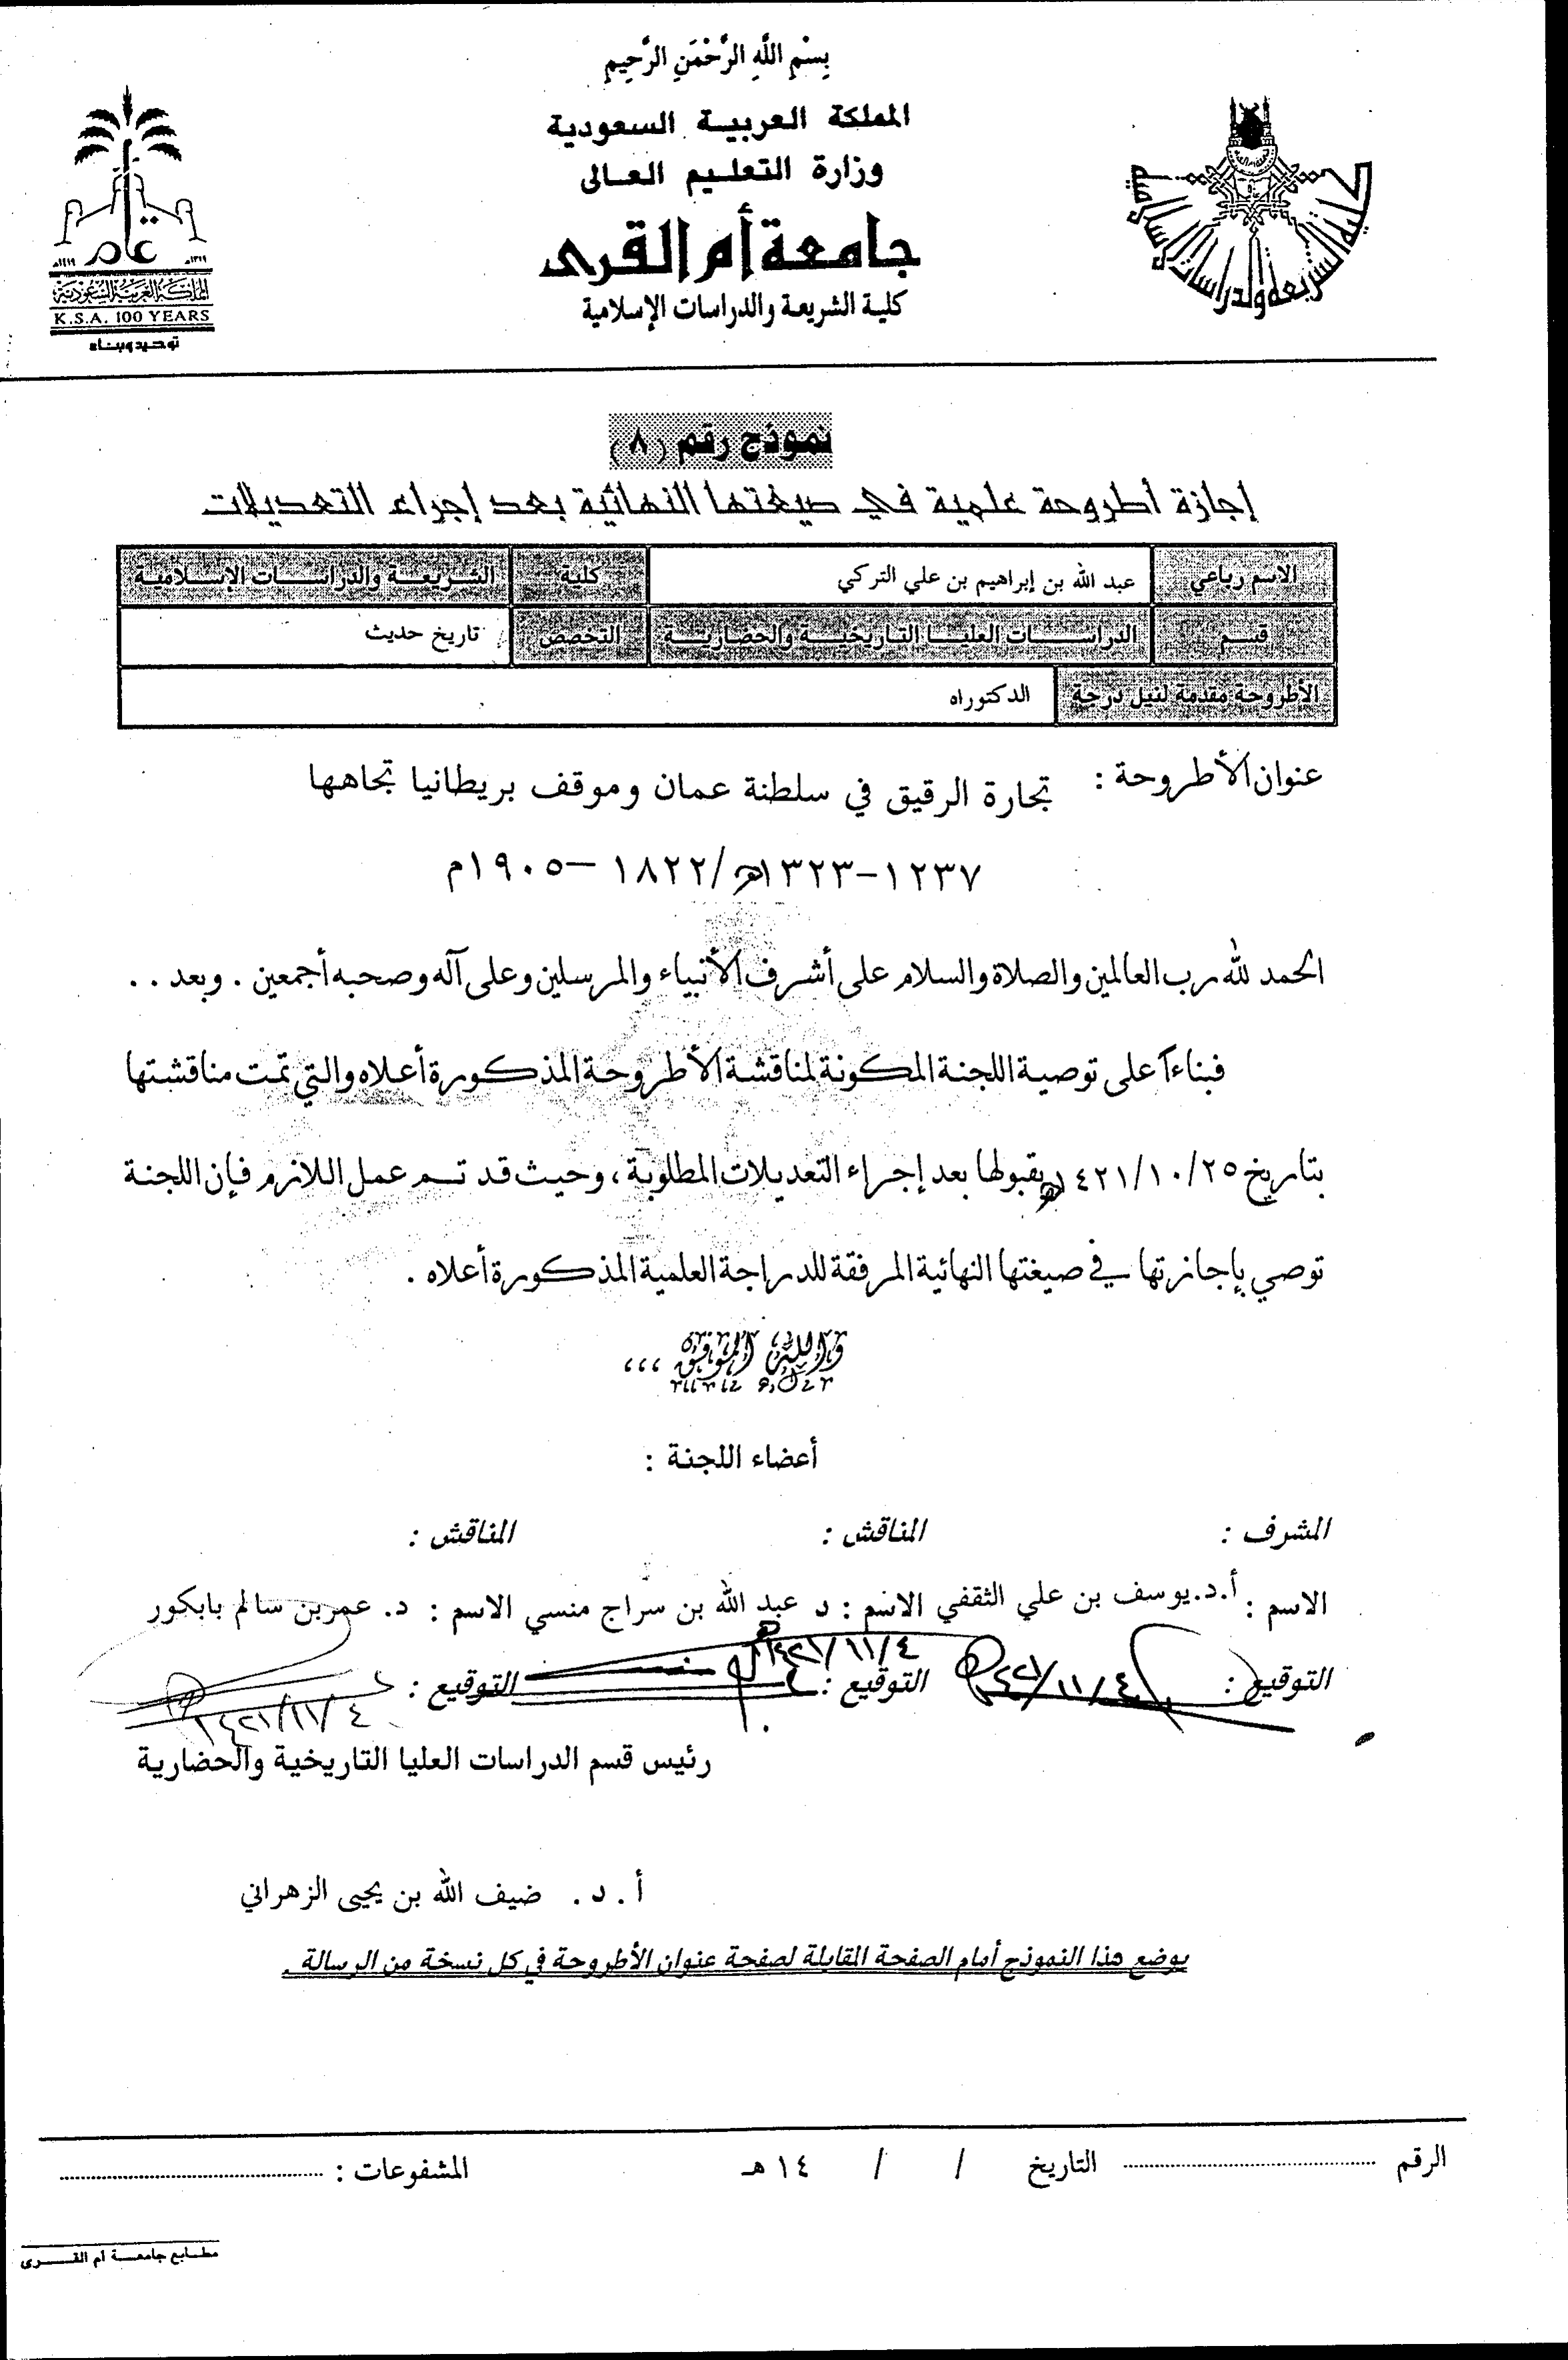 بِسْمِ اللَّهِ الرَّحْمَنِ الرَّحِيمِ
المملكة العربية السعودية
وزارة التعليم العالى
جامعة أم القرى
كلية الشريعة والدراسات الإسلامية
عام
١٣١٩هـ ١٤١٩هـ
المملكة العربية السعودية
K.S.A. 100 YEARS
توحيد وبناء
نموذج رقم (٨)
إجازة أطروحة علمية في صيغتها النهائية بعد إجراء التعديلات
الاسم رباعي عبد الله بن إبراهيم بن علي التركي كلية الشريعة والدراسات الإسلامية
قسم الدراسات العليا التاريخية والحضارية التخصص تاريخ حديث
الأطروحة مقدمة لنيل درجة الدكتوراه
عنوان الأطروحة : تجارة الرقيق في سلطنة عمان وموقف بريطانيا تجاهها
١٢٣٧-١٣٢٣هـ/١٨٢٢-١٩٠٥م
الحمد لله رب العالمين والصلاة والسلام على أشرف الأنبياء والمرسلين وعلى آله وصحبه أجمعين . وبعد . .
فبناءاً على توصية اللجنة المكونة لمناقشة الأطروحة المذكورة أعلاه والتي تمت مناقشتها
بتاريخ ١٤٢١/١٠/٢٥هـ بقبولها بعد إجراء التعديلات المطلوبة ، وحيث قد تم عمل اللازم فإن اللجنة
توصي بإجازتها في صيغتها النهائية المرفقة للدراجة العلمية المذكورة أعلاه .
والله الموفق ،،،
أعضاء اللجنة :
المشرف : المناقش : المناقش :
الاسم : أ.د.يوسف بن علي الثقفي الاسم : د عبد الله بن سراج منسي الاسم : د. عمر بن سالم بابكور
التوقيع : ١٤٢١/١١/٤هـ التوقيع : ١٤٢١/١١/٤هـ التوقيع : ١٤٢١/١١/٤
رئيس قسم الدراسات العليا التاريخية والحضارية
أ . د . ضيف الله بن يحيى الزهراني
يوضع هذا النموذج أمام الصفحة المقابلة لصفحة عنوان الأطروحة في كل نسخة من الرسالة .
الرقم التاريخ / / ١٤ هـ المشفوعات :
مطابع جامعة أم القرى